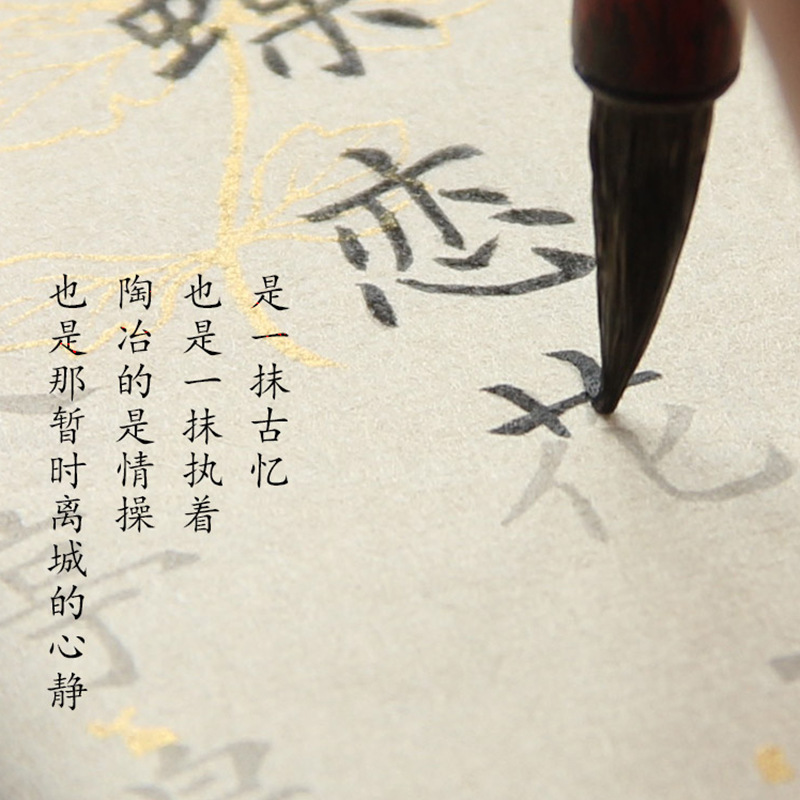 蝶恋花
是一抹古忆
也是一抹执着
陶冶的是情操
也是那暂时离城的心静